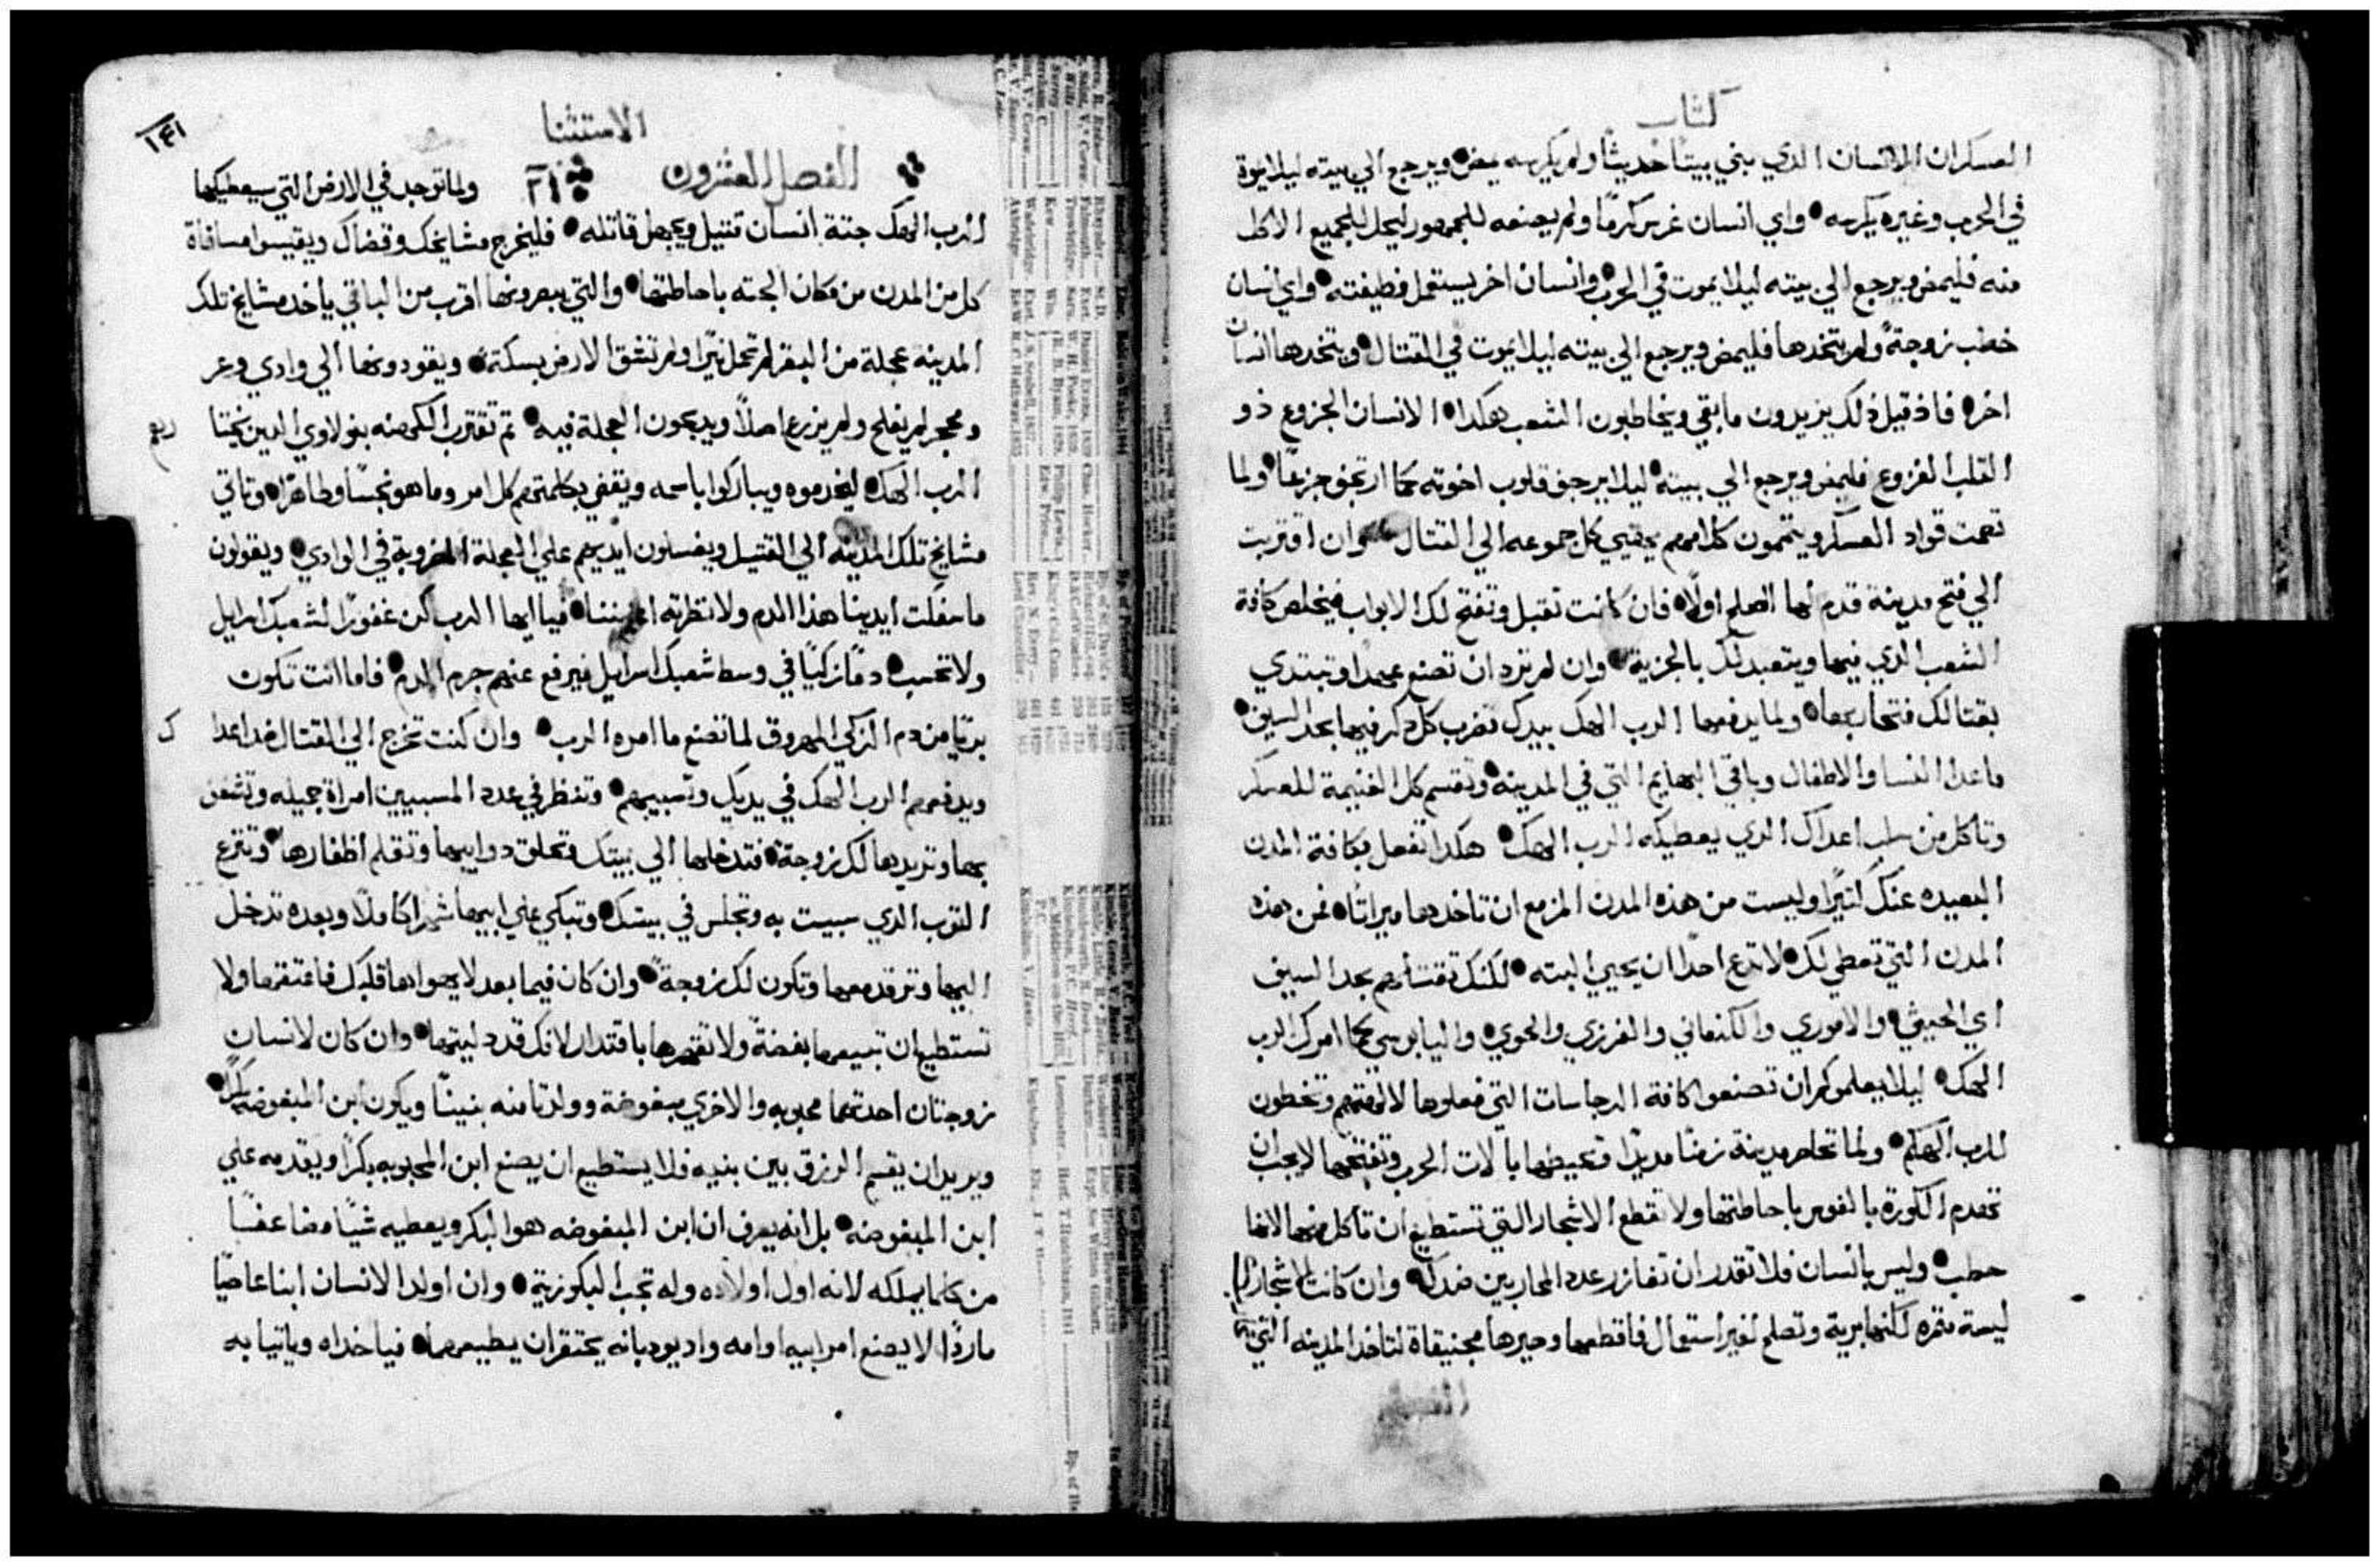 كتاب
العسكر ان الانسان الدي بني بيتا حديثا ولم يكرسه يمض ويرجع الي بيته ليلا يموة
في الحرب وغيره يكرسه واي انسان غرس كرما ولم يصنعه للجمهور ليحل للجميع الاكل
منه فليمض ويرجع الي بيته ليلا يموت في الحرب وانسان اخر يستعمل وظيفته واي انسان
خطب زوجة ولم يتخدها فليمض ويرجع الي بيته ليلا يموت في القتال ويتخدها انسان
اخر فاذ قيل ذلك يزيدون ما بقي ويخاطبون الشعب هكدا الانسان الجزوع ذو
القلب الفزوع فليمض ويرجع الي بيته ليلا يرجف قلوب اخوته كما ارتجف جزعا ولما
تصمت قواد العسكر ويتممون كلامهم يهيي كل جموعه الي القتال وان اقتربت
الي فتح مدينة قدم لها الصلح اولا فان كانت تقبل وتفتح لك الابواب فيخلص كافة
الشعب الدي فيها ويتعبد لك بالجزية وان لم ترد ان تصنع عهدا وتبتدي
بقتالك فتحاربها ولما يدفعها الرب الهك بيدك تضرب كل دكر فيها بحد السيف
ماعدا النسا والاطفال وباقي البهايم التي في المدينة وتقسم كل الغنيمة للعسكر
وتاكل من سلب اعداك الدي يعطيكه الرب الهك هكدا تفعل بكافة المدن
البعيده عنك كتيرا وليست من هذه المدن المزمع ان تاخدها ميراتا فمن هذه
المدن التي تعطي لك لا تدع احدا ان يحيي البته لكنك تقتلهم بحد السيف
اي الحيثي والاموري والكنعاني والفرزي والحوي واليابوسي كما امرك الرب
الهك ليلا يعلموكم ان تصنعوا كافة الرجاسات التي فعلوها لالهتهم وتخطون
للرب الهكم ولما تحاصر مدينة زمنا مديدا وتحيطها بالات الحرب وتفتحها لا يجب ان
تهدم الكورة بالفوس باحاطتها ولا تقطع الاشجار التي تستطيع ان تاكل منها لانها
حطب وليس بانسان فلا تقدر ان تغازر عدد المحاربين ضدك وان كانت الاشجار
ليسة مثمره لكنها برية وتصلح لغير استعمال فاقطعها وصيرها مجنيقاة لتاخد المدينه التي
الاستثنا
١٤١
الفصل العشرون ٢١ ولما توجد في الارض التي سيعطيكها
الرب الهك جتة انسان قتيل ويجهل قاتله فليخرج مشايخك وقضاك ويقيسوا مسافاة
كل من المدن من مكان الجته باحاطتها والتي يبصرونها اقرب من الباقي ياخد مشايخ تلك
المدينة عجلة من البقر لم تحمل نيرا ولم تشق الارض بسكتة ويقودونها الي وادي وعر
ومحجر لم يفلح ولم يزرع اصلا ويدبحون العجلة فيه تم تقترب الكهنه بنو لاوي الدين يختا
ربع
الرب الهك ليخدموه ويباركوا باسمه ويقضي بكلمتهم كل امر وما هو نجسا وطاهرا وتاتي
مشايخ تلك المدينه الي القتيل ويغسلون ايديهم علي العجلة المضروبة في الوادي ويقولون
ما سفكت ايدينا هذا الدم ولا نظرته اعيننا فيا ايها الرب كن غفورا لشعبك اسرايل
ولا تحسب دما زكيا في وسط شعبك اسرايل فيرفع عنهم جرم الدم فاما انت تكون
بريا من دم الزكي المهروق لما تصنع ما امره الرب وان كنت تخرج الي القتال ضد اعدا
ك
ويدفعهم الرب الهك في يديك وتسبيهم وتنظر في عدد المسبيين امراة جميله وتشغف
بها وتريدها لك زوجة فتدخلها الي بيتك وتحلق دوايبها وتقلم اظفارها وتنزع
التوب الدي سبيت به وتجلس في بيتك وتبكي علي ابيها شهرا كاملا وبعده تدخل
اليها وترقد معها وتكون لك زوجة وان كان فيما بعد لا يهواها قلبك فاعتقها ولا
تستطيع ان تبيعها بفضة ولا تقهرها باقتدار لانك قد دليتها وان كان لانسان
زوجتان احدتهما محبوبه والاخري مبغوضة وولدتا منه بنينا ويكون ابن المبغوضه بكرا
ويريد ان يقسم الرزق بين بنيه فلا يستطيع ان يصنع ابن المحبوبه بكرا ويقدمه علي
ابن المبغوضه بل انه يعرف ان ابن المبغوضه هو البكر ويعطيه شيا مضاعفا
من كلما يملكه لانه اول اولاده وله تجب البكورية وان اولد الانسان ابنا عاصيا
ماردا لا يصنع امر ابيه او امه واد يودبانه يحتقر ان يطيعهما فياخداه وياتيا به